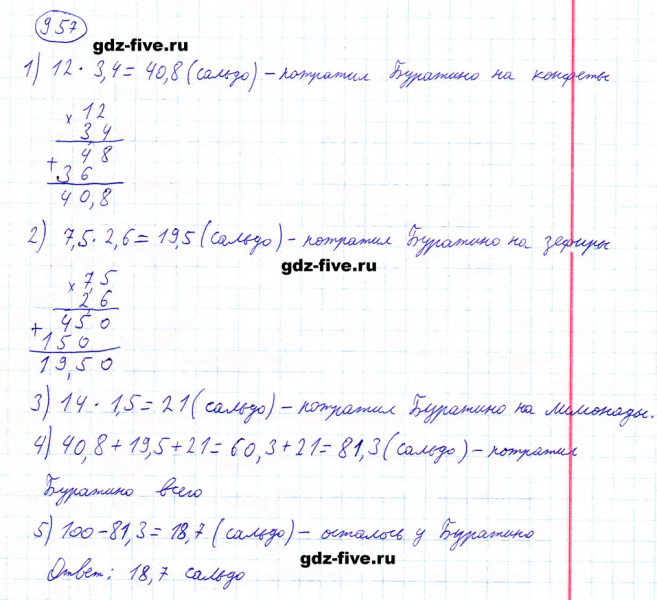 957
gdz-five.ru
1) 12 · 3,4 = 40,8 (сальдо) – потратил Буратино на конфеты
× 12
3,4
+ 48
36
40,8
2) 7,5 · 2,6 = 19,5 (сальдо) – потратил Буратино на зефиры
gdz-five.ru
× 7,5
2,6
+ 450
150
19,50
3) 14 · 1,5 = 21 (сальдо) – потратил Буратино на лимонады.
4) 40,8 + 19,5 + 21 = 60,3 + 21 = 81,3 (сальдо) – потратил
Буратино всего
5) 100 – 81,3 = 18,7 (сальдо) – осталось у Буратино
gdz-five.ru
Ответ: 18,7 сальдо